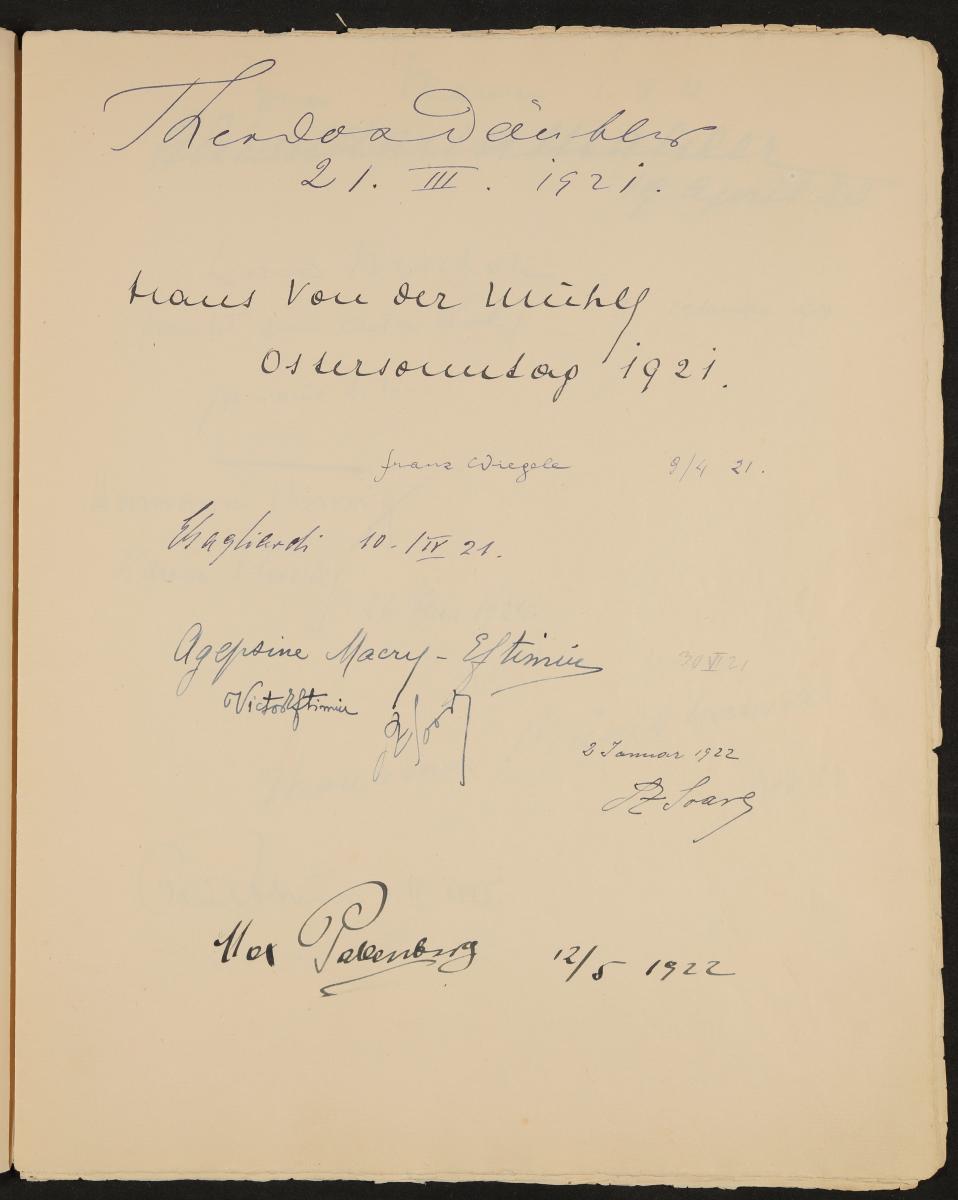 Theodor Däubler
21. III. 1921.
Hans Von der Mühll
Ostersonntag 1921.
Franz Wiegele 9/4 21.
EGagliardi 10. IV 21.
Agepsine Macry - Eftimiu 30 VI 21
Victor Eftimiu
2 Januar 1922
Max Pallenberg 12/5 1922